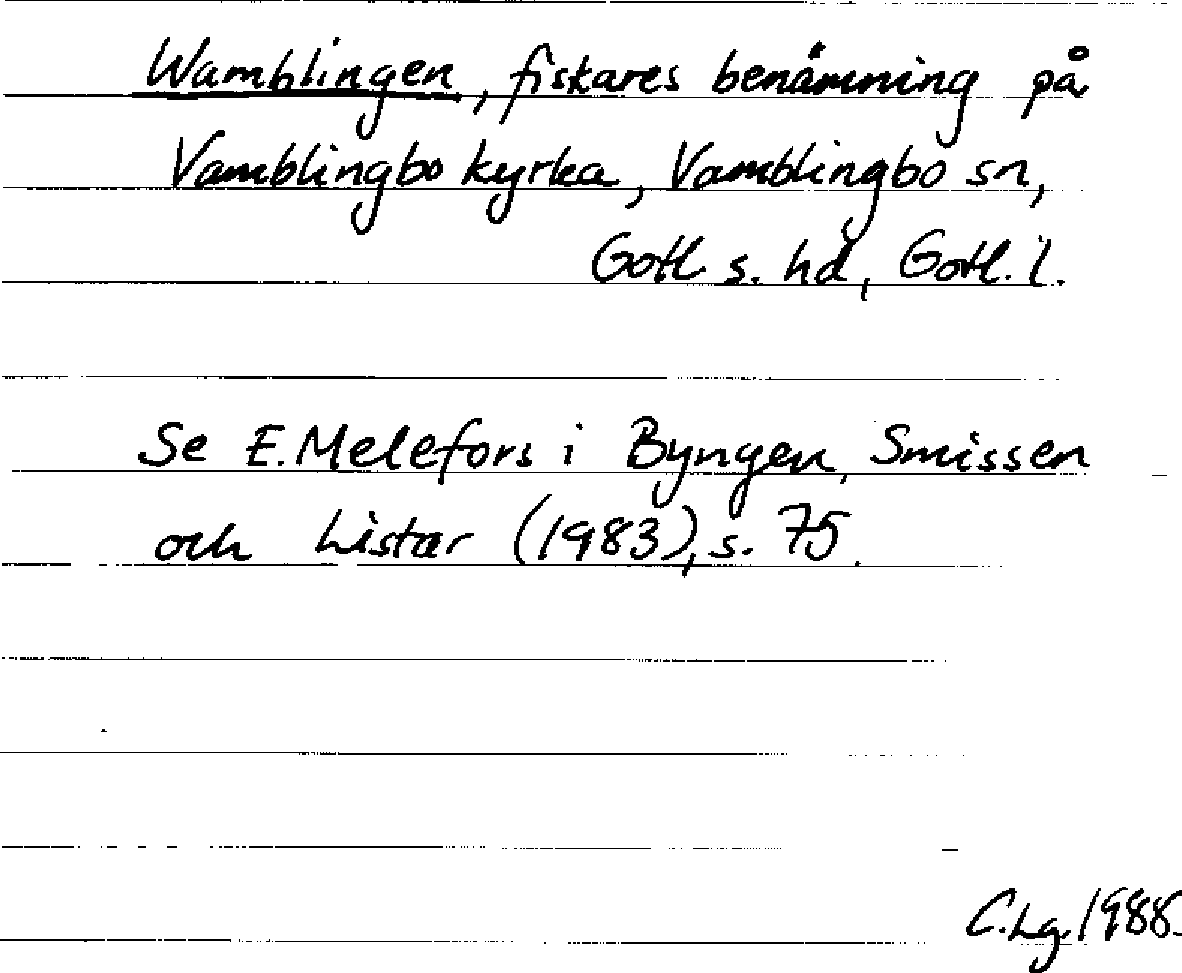 Wamblingen, fiskares benämning på
Vamblingbo kyrka, Vamblingbo sn,
Gotl s. hd, Gotl. l.
Se E. Melefors i Byngen, Smissen
och Listar (1983), s. 75.
C.Lg. 1988.